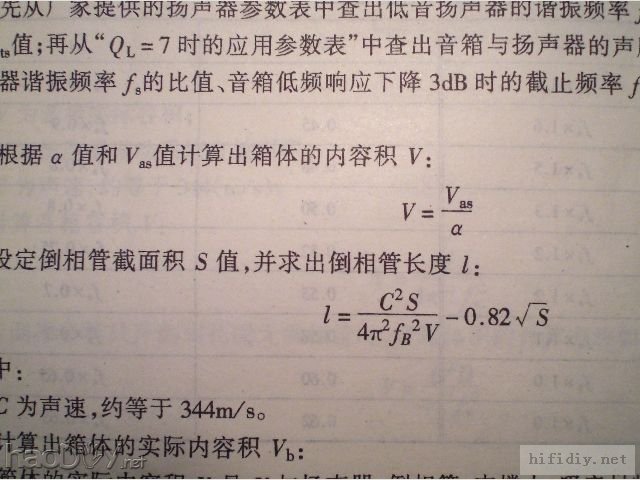 先从厂家提供的扬声器参数表中查出低音扬声器的谐振频率
ts值;再从“QL=7时的应用参数表”中查出音箱与扬声器的声
器谐振频率 fs的比值、音箱低频响应下降 3dB 时的截止频率 f
根据 α 值和 Vas值计算出箱体的内容积 V:
V = Vas/α
设定倒相管截面积 S 值,并求出倒相管长度 l:
l = C²S/4π²fB²V - 0.82√S
中:
C 为声速,约等于 344m/s。
计算出箱体的实际内容积 Vb:
hifidiy.net